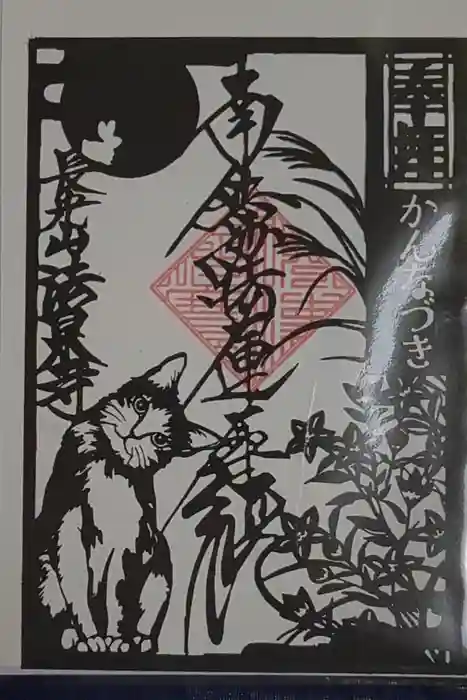 奉拝
かんなづき
南無妙法蓮華経
山法泉寺